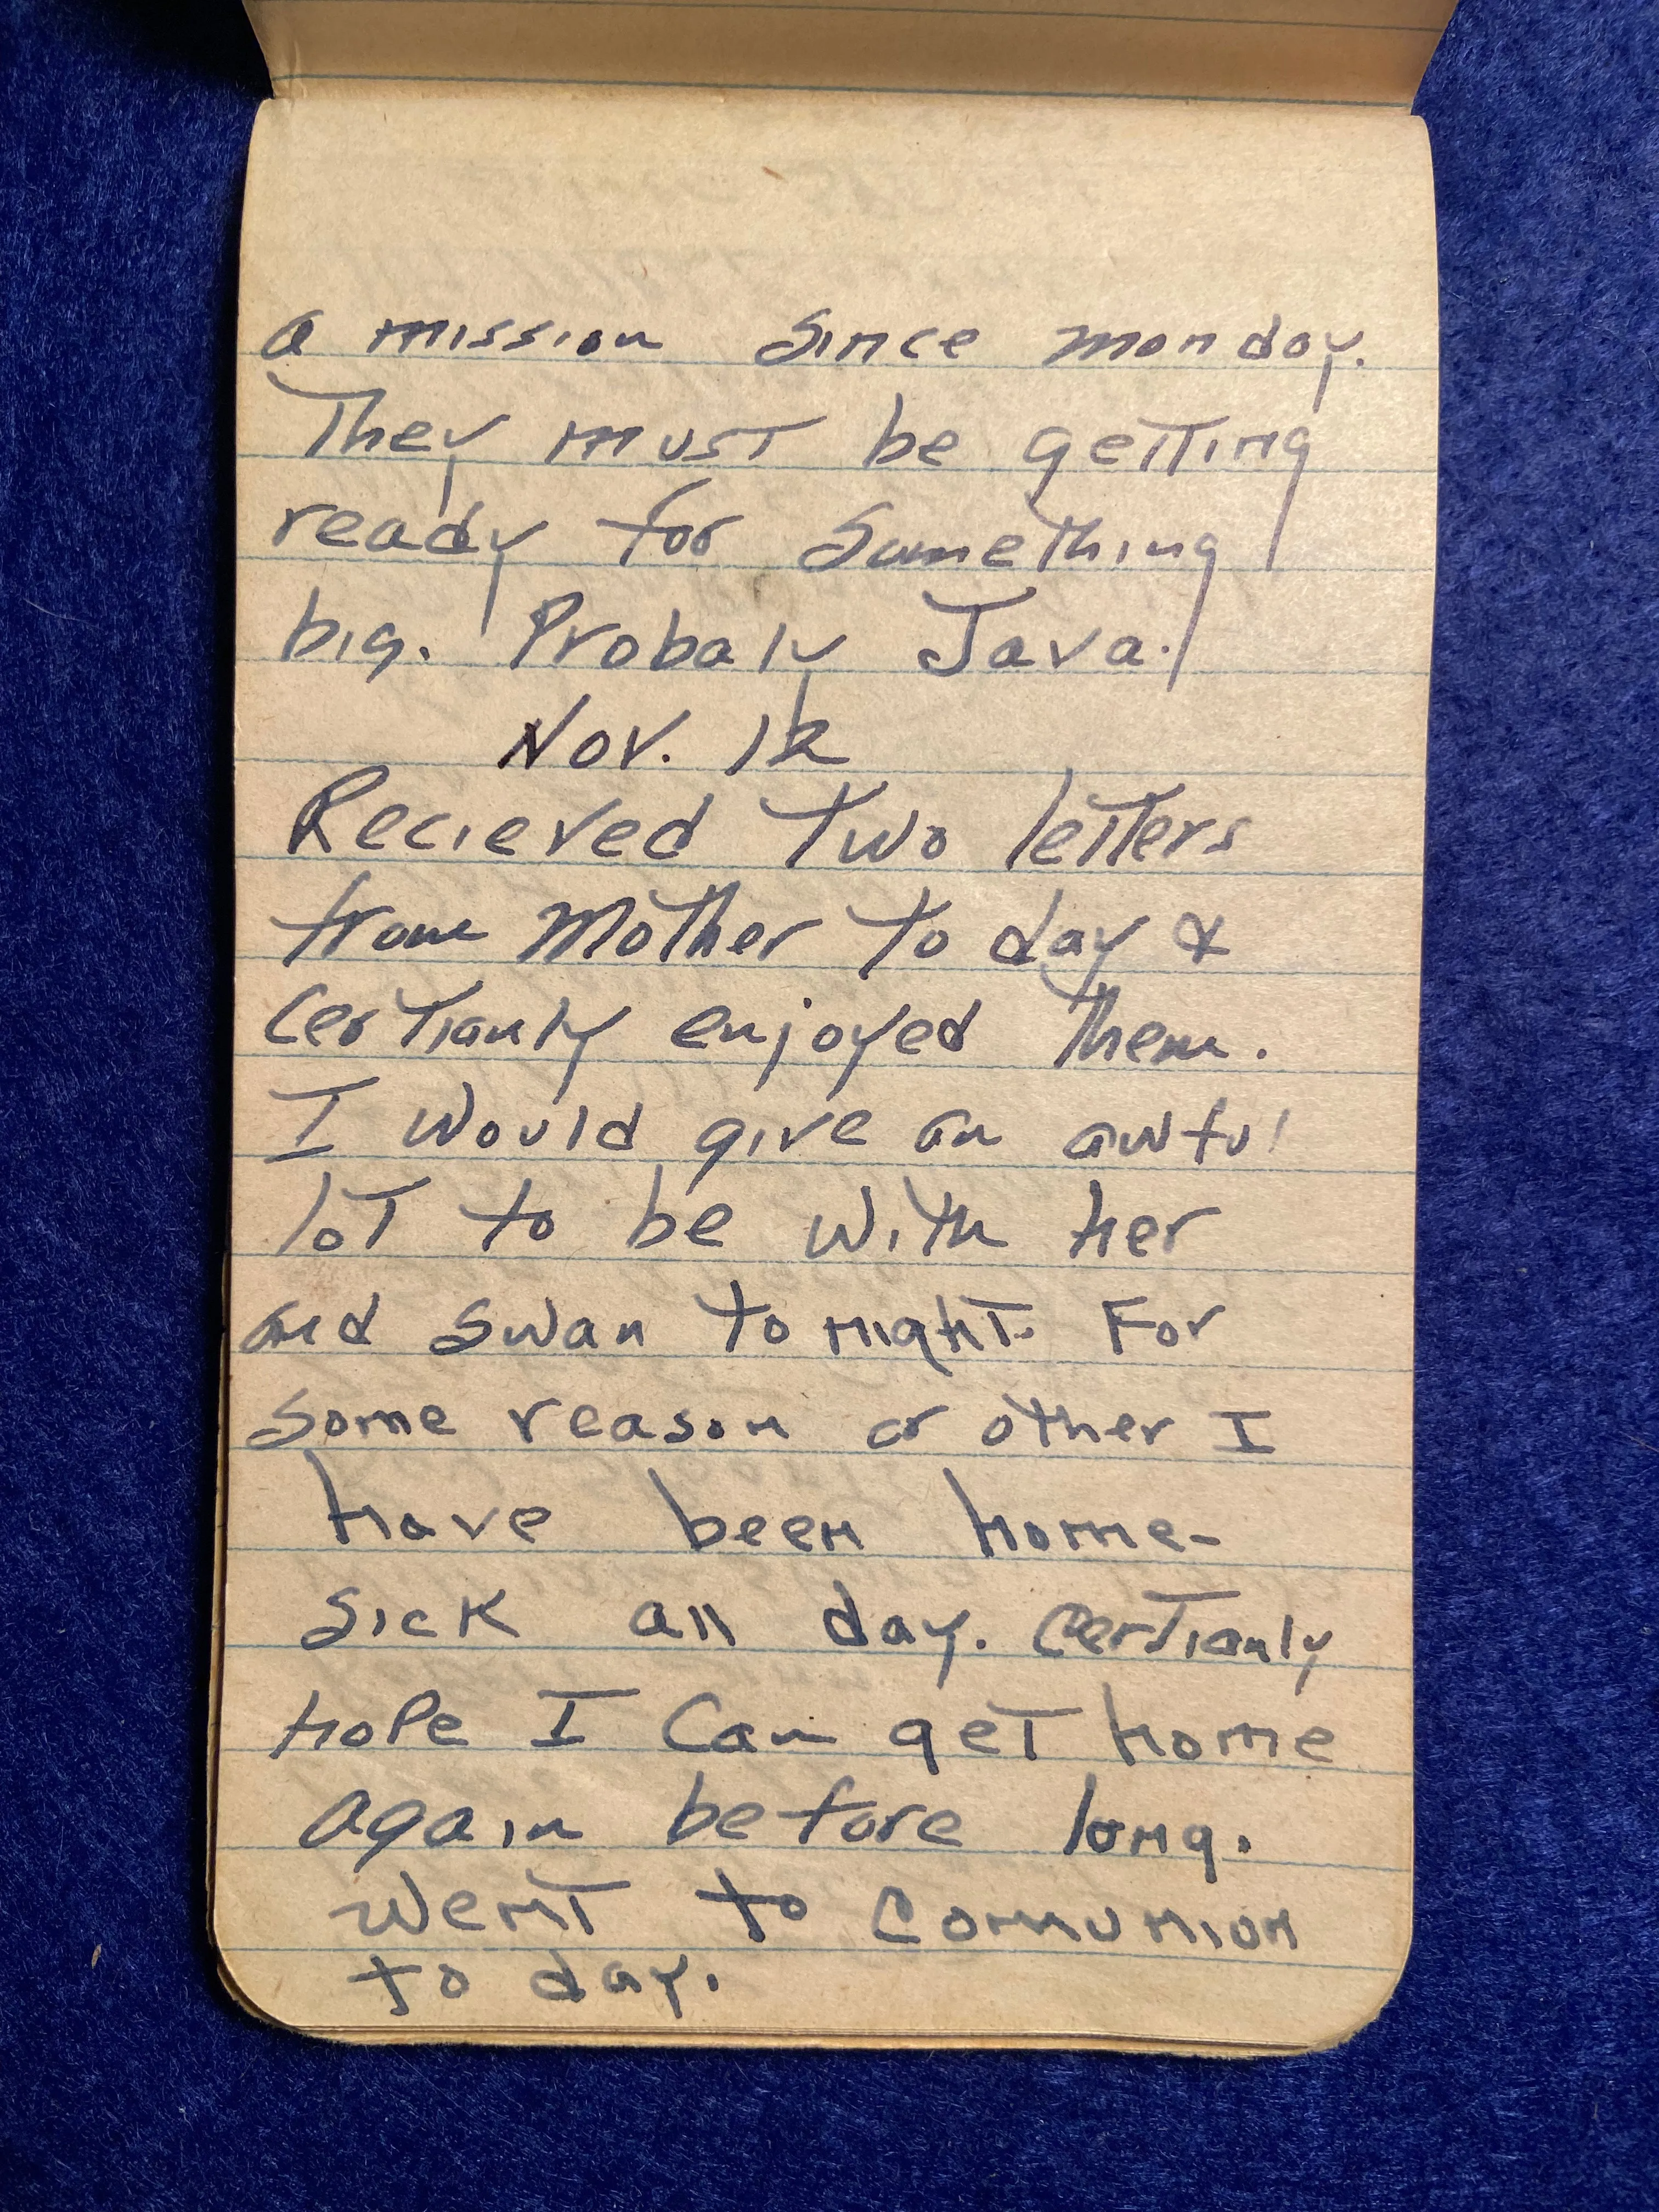 a mission since monday.
They must be getting
ready for something
big. Probaly Java.
Nov. 12
Recieved two letters
from Mother to day &
certianly enjoyed them.
I would give an awful
lot to be with her
and Swan to night. For
some reason or other I
have been home-
sick all day. Certianly
hope I can get home
again before long.
Went to Comunion
to day.